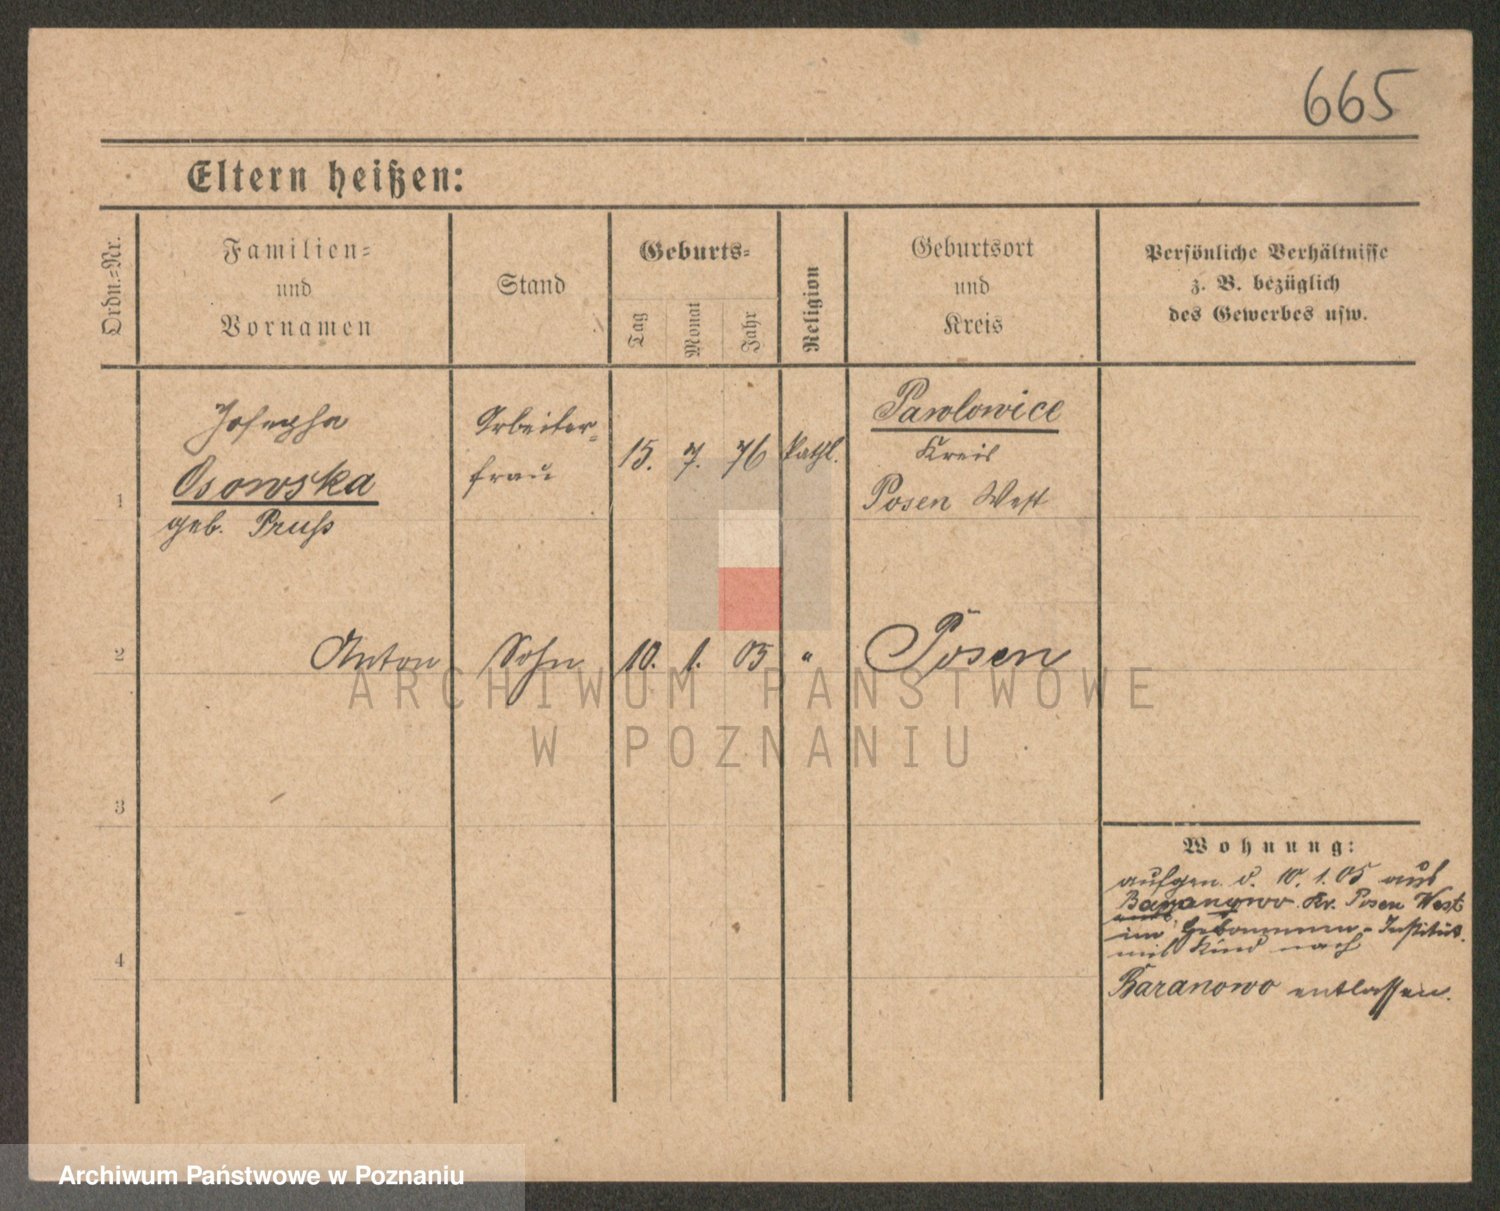 665
Eltern heißen:
Ordn.=Nr.
Familien=
und
Vornamen
Stand
Geburts=
Tag
Monat
Jahr
Religion
Geburtsort
und
Kreis
Persönliche Verhältnisse
z. B. bezüglich
des Gewerbes usw.
1
Josepha
Osowska
geb. Pruß
Arbeiter=
frau
15. 7. 76
kathl.
Pawlowice
Kreis
Posen West
2
Anton
Sohn
10. 1. 05
"
Posen
3
4
Wohnung:
aufgen. d. 10. 1. 05 aus
Baranowo Kr. Posen West
im Hebammen-Institut.
mit Kind nach
Baranowo entlassen.
ARCHIWUM PAŃSTWOWE
W POZNANIU
Archiwum Państwowe w Poznaniu